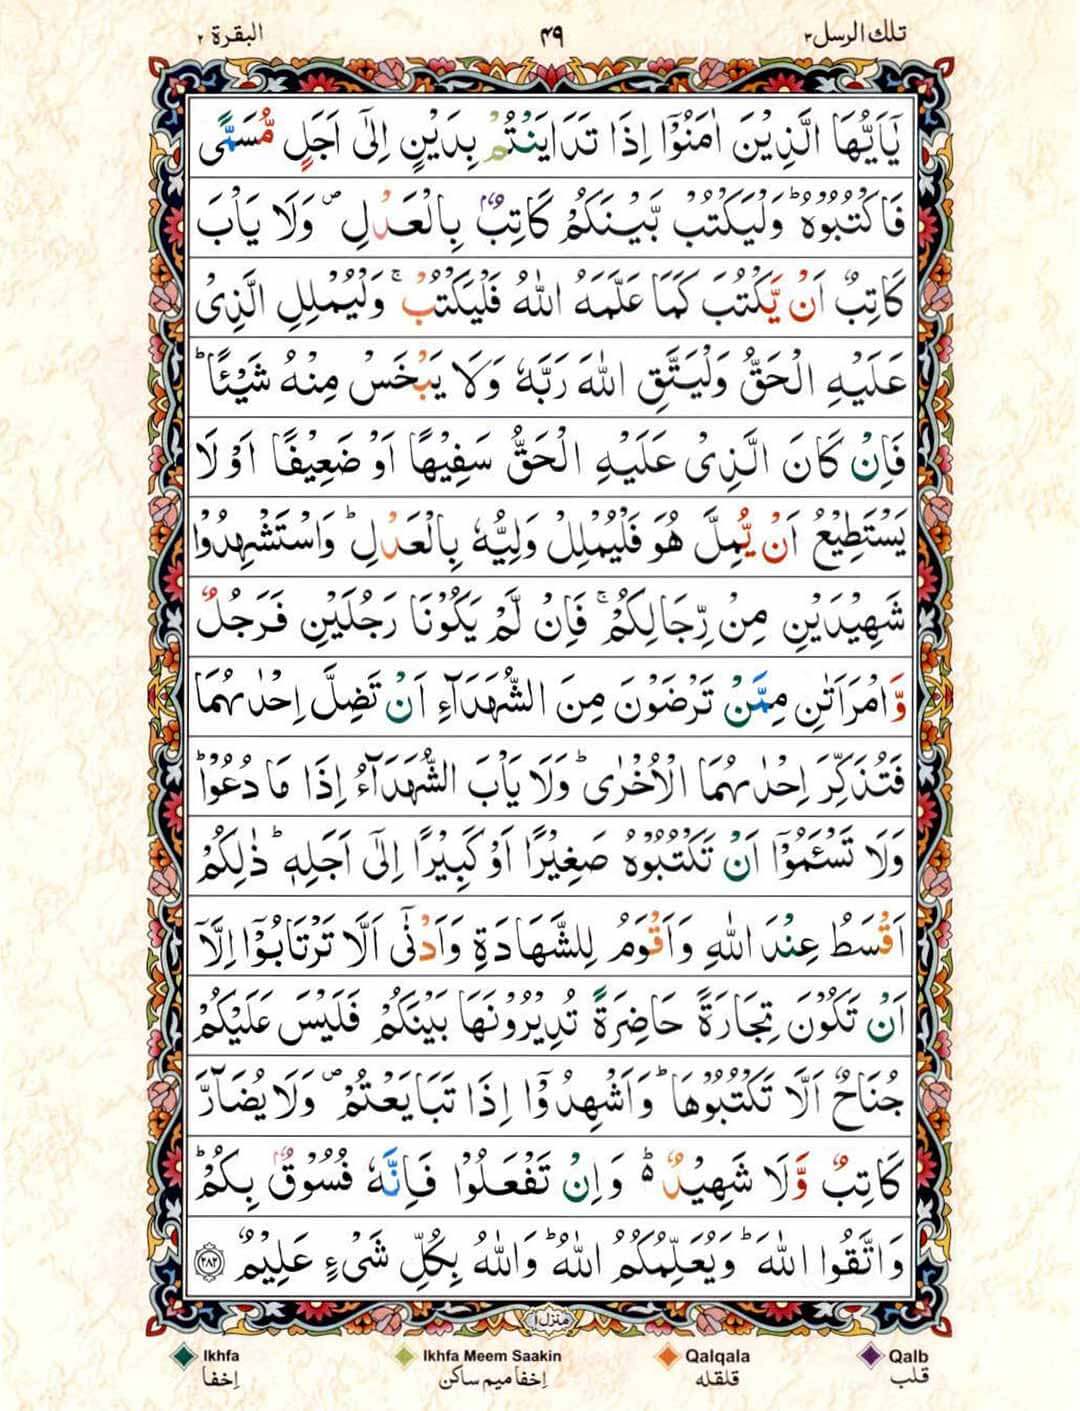 تلك الرسل ٣ ۴۹ البقرة ٢
يٰۤاَيُّهَا الَّذِيْنَ اٰمَنُوْۤا اِذَا تَدَايَنْتُمْ بِدَيْنٍ اِلٰۤى اَجَلٍ مُّسَمًّى
فَاكْتُبُوْهُ ؕ وَلْيَكْتُبْ بَّيْنَكُمْ كَاتِبٌۢ بِالْعَدْلِ ۪ وَلَا يَاْبَ
كَاتِبٌ اَنْ يَّكْتُبَ كَمَا عَلَّمَهُ اللّٰهُ فَلْيَكْتُبْ ۚ وَلْيُمْلِلِ الَّذِىْ
عَلَيْهِ الْحَقُّ وَلْيَتَّقِ اللّٰهَ رَبَّهٗ وَلَا يَبْخَسْ مِنْهُ شَيْـًٔا ؕ
فَاِنْ كَانَ الَّذِىْ عَلَيْهِ الْحَقُّ سَفِيْهًا اَوْ ضَعِيْفًا اَوْ لَا
يَسْتَطِيْعُ اَنْ يُّمِلَّ هُوَ فَلْيُمْلِلْ وَلِيُّهٗ بِالْعَدْلِ ؕ وَاسْتَشْهِدُوْا
شَهِيْدَيْنِ مِنْ رِّجَالِكُمْ ۚ فَاِنْ لَّمْ يَكُوْنَا رَجُلَيْنِ فَرَجُلٌ
وَّامْرَاَتٰنِ مِمَّنْ تَرْضَوْنَ مِنَ الشُّهَدَآءِ اَنْ تَضِلَّ اِحْدٰىهُمَا
فَتُذَكِّرَ اِحْدٰىهُمَا الْاُخْرٰى ؕ وَلَا يَاْبَ الشُّهَدَآءُ اِذَا مَا دُعُوْا ؕ
وَلَا تَسْـَٔمُوْۤا اَنْ تَكْتُبُوْهُ صَغِيْرًا اَوْ كَبِيْرًا اِلٰۤى اَجَلِهٖ ؕ ذٰلِكُمْ
اَقْسَطُ عِنْدَ اللّٰهِ وَاَقْوَمُ لِلشَّهَادَةِ وَاَدْنٰۤى اَلَّا تَرْتَابُوْۤا اِلَّاۤ
اَنْ تَكُوْنَ تِجَارَةً حَاضِرَةً تُدِيْرُوْنَهَا بَيْنَكُمْ فَلَيْسَ عَلَيْكُمْ
جُنَاحٌ اَلَّا تَكْتُبُوْهَا ؕ وَاَشْهِدُوْۤا اِذَا تَبَايَعْتُمْ ۪ وَلَا يُضَآرَّ
كَاتِبٌ وَّلَا شَهِيْدٌ ۬ؕ وَاِنْ تَفْعَلُوْا فَاِنَّهٗ فُسُوْقٌۢ بِكُمْ ؕ
وَاتَّقُوا اللّٰهَ ؕ وَيُعَلِّمُكُمُ اللّٰهُ ؕ وَاللّٰهُ بِكُلِّ شَىْءٍ عَلِيْمٌ ﴿۲۸۲﴾
منزل ١
Ikhfa Ikhfa Meem Saakin Qalqala Qalb
اِخفا اِخفا میم ساکن قلقلہ قلب